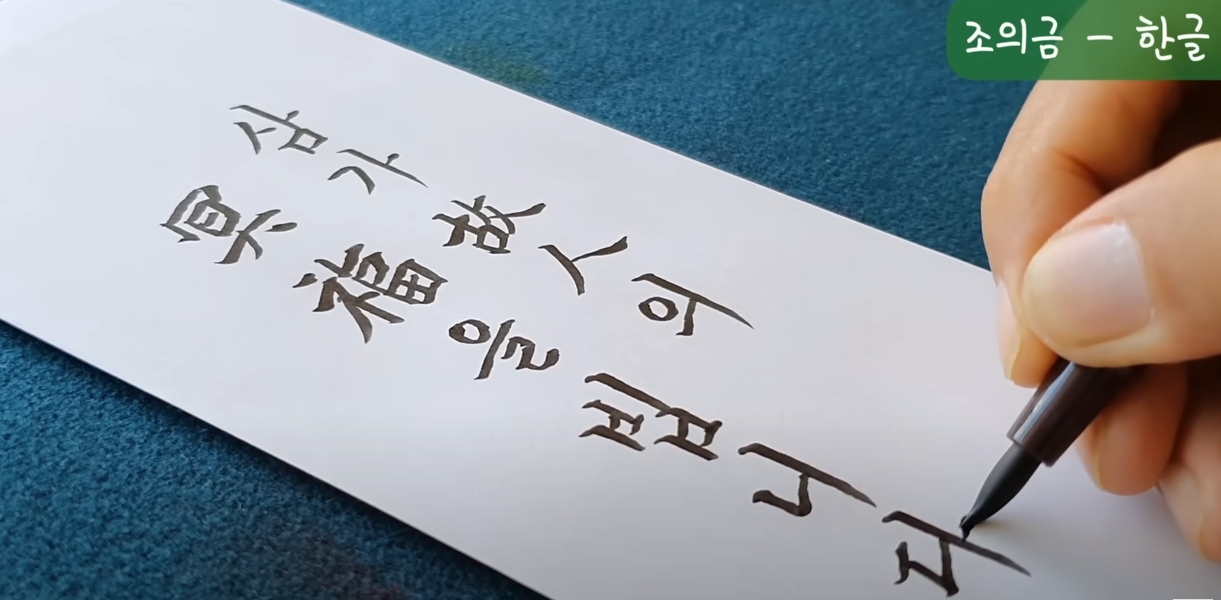 조의금 - 한글
삼가 故人의
冥福을 빕니다